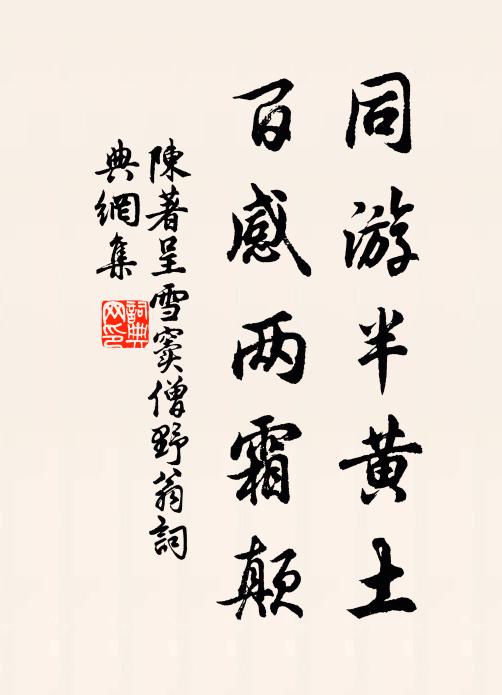 同游半黄土
百感两霜颠
陳著呈雪窦僧野翁詞
典網集
詞典网印